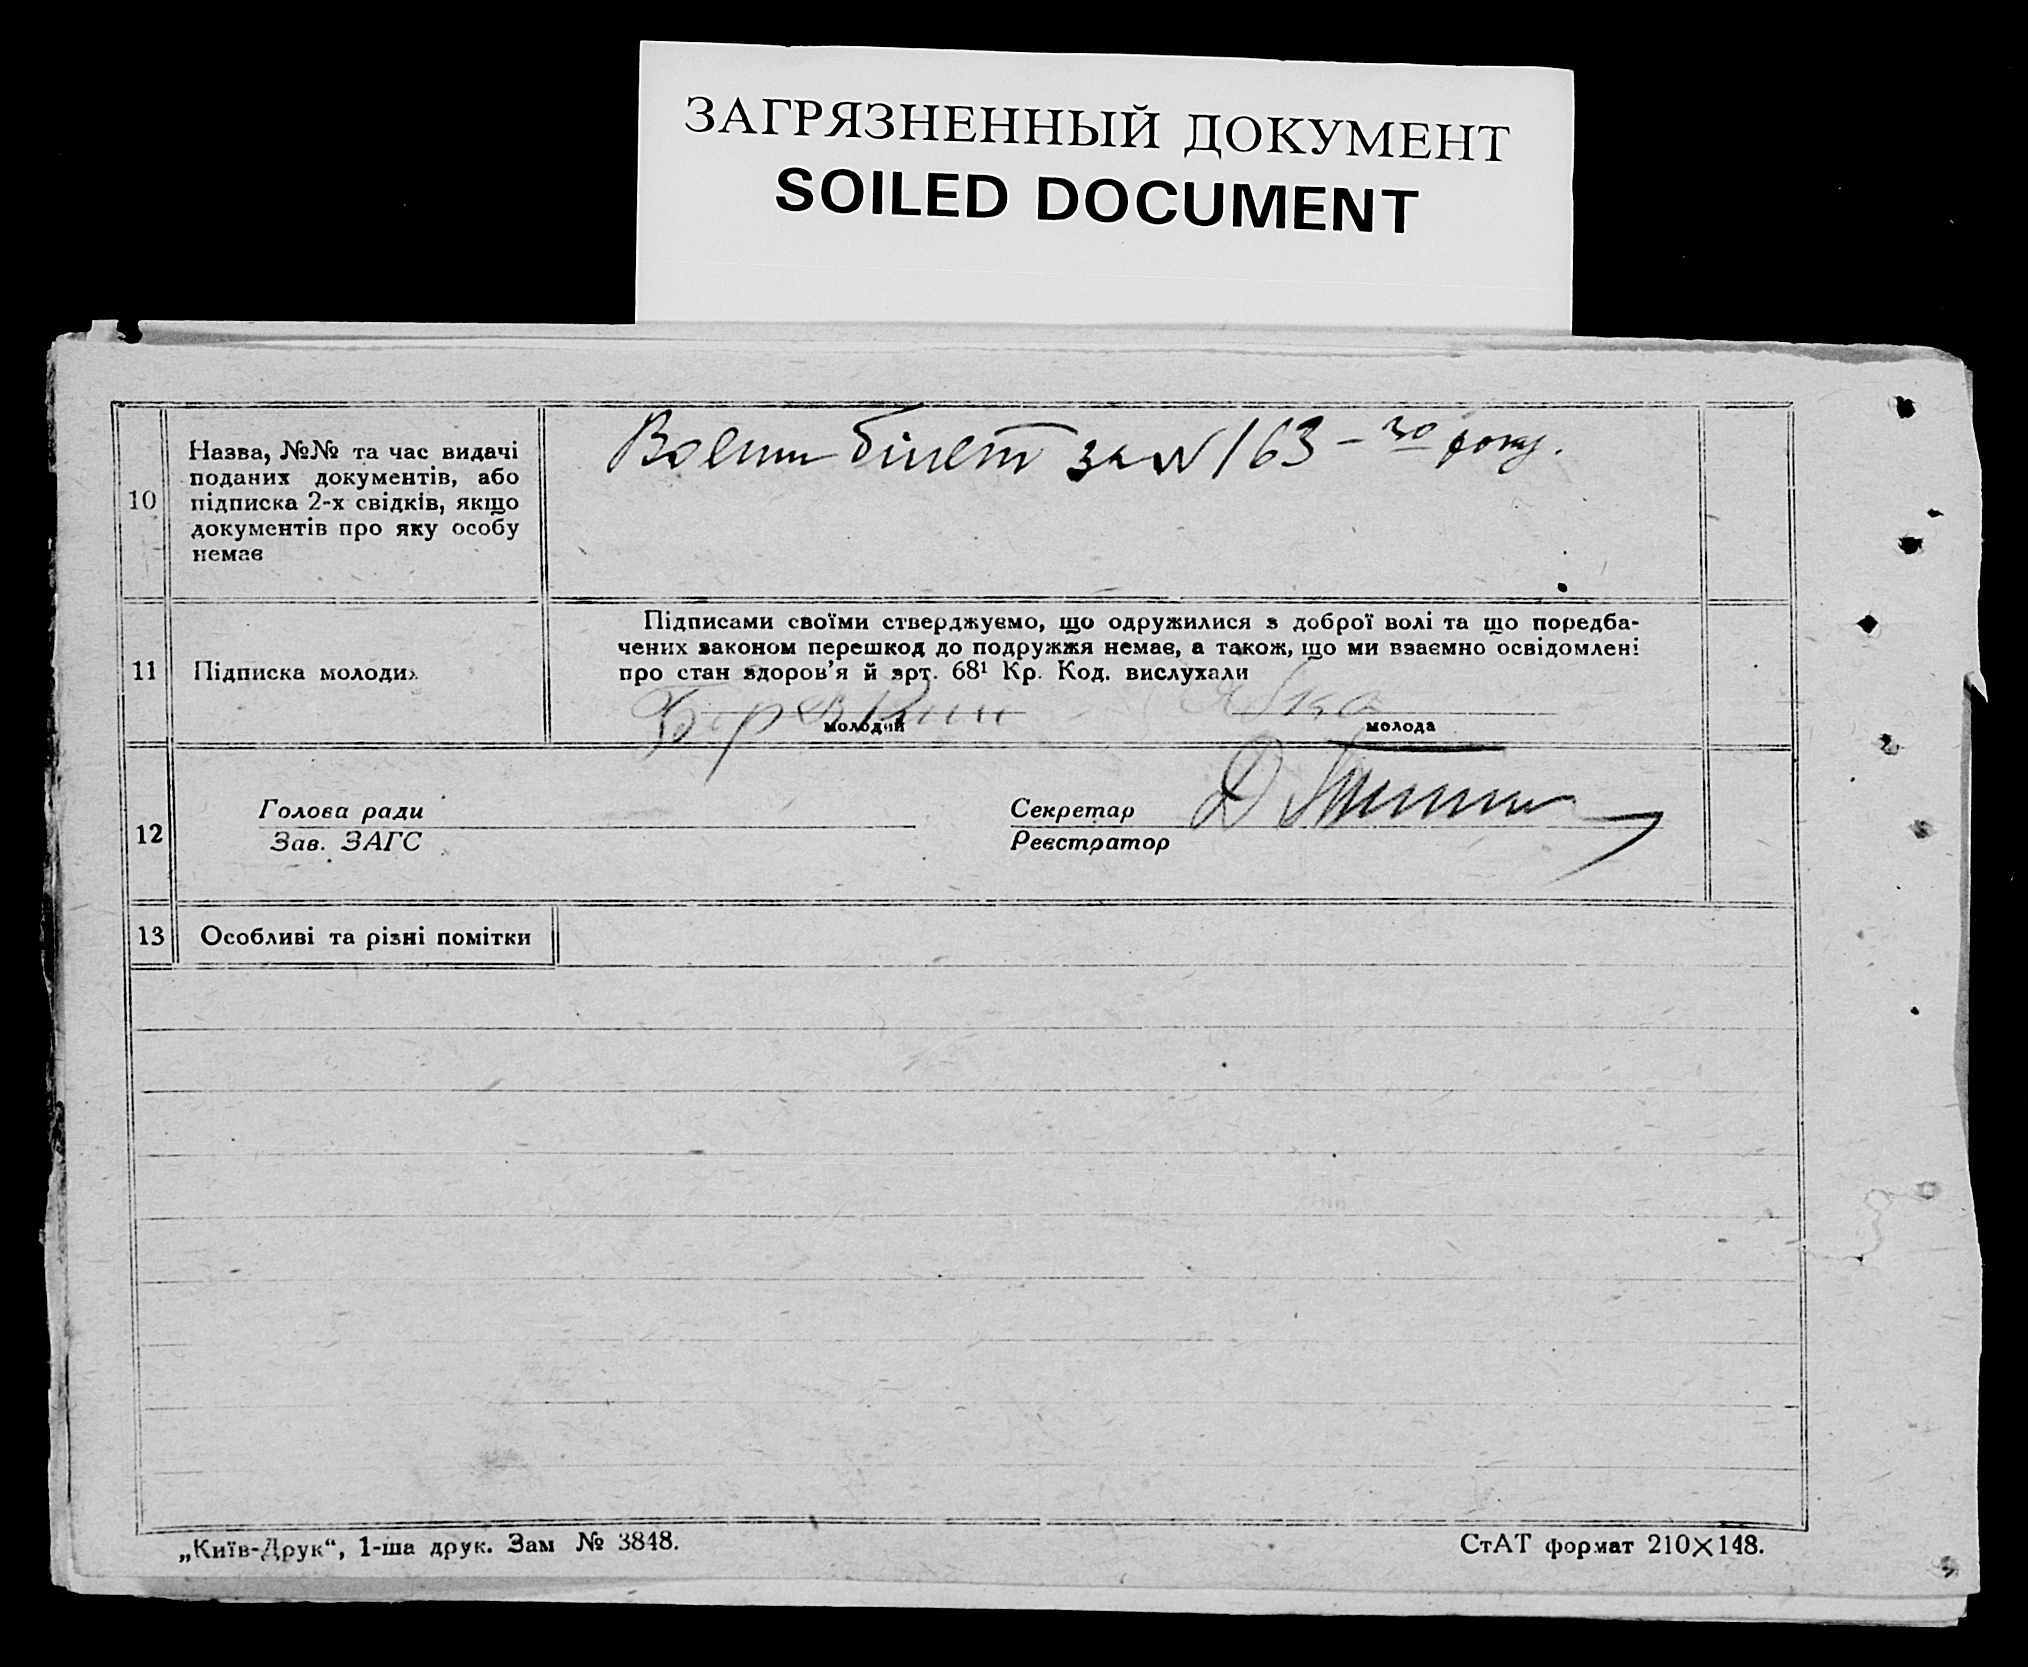 ЗАГРЯЗНЕННЫЙ ДОКУМЕНТ
SOILED DOCUMENT
10
Назва, №№ та час видачі
поданих документів, або
підписка 2-х свідків, якщо
документів про яку особу
немає
білет за N 163 – 30 року.
11
Підписка молодих
Підписами своїми стверджуємо, що одружилися з доброї волі та що передба-
чених законом перешкод до подружжя немає, а також, що ми взаємно освідомлені
про стан здоров'я й арт. 68¹ Кр. Код. вислухали
молодий
молода
12
Голова ради
Зав. ЗАГС
Секретар
Реєстратор
13
Особливі та різні помітки
„Київ-Друк“, 1-ша друк. Зам № 3848.
СтАТ формат 210×148.